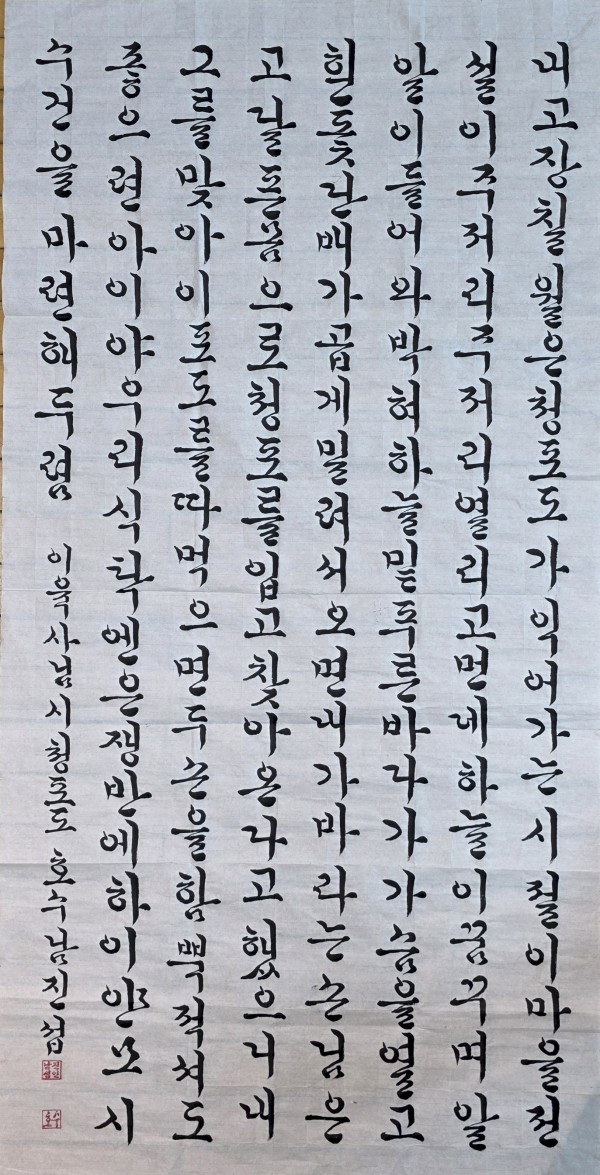 내고장칠월은청포도가익어가는시절이마을전
설이주저리주저리열리고먼데하늘이꿈꾸며알
알이들어와박혀하늘밑푸른바다가가슴을열고
흰돛단배가곱게밀려서오면내가바라는손님은
고달픈몸으로청포를입고찾아온다고했으니내
그를맞아이포도를따먹으면두손을함뿍적셔도
좋으련아이야우리식탁엔은쟁반에하이얀모시
수건을마련해두렴 이육사님시청포도 호수남진섭